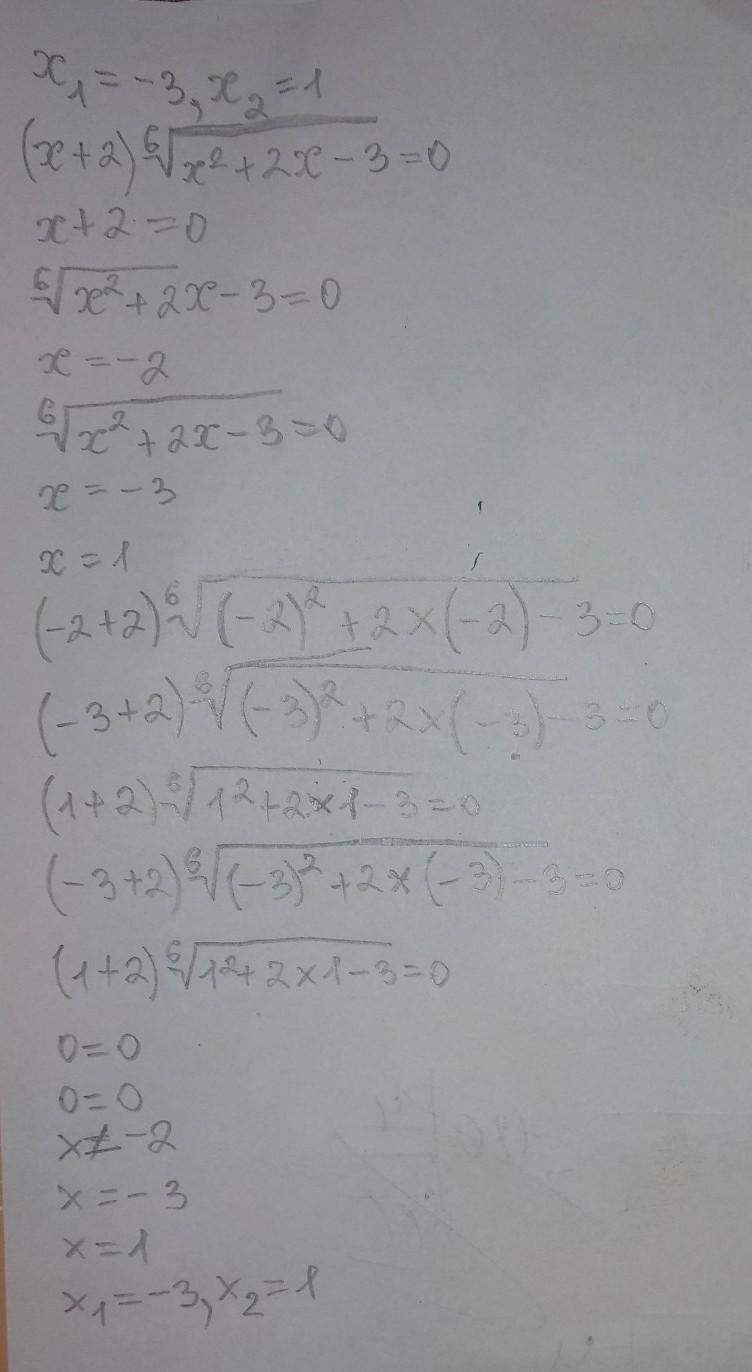 x₁ = -3, x₂ = 1
(x+2) ⁶√(x²+2x-3) = 0
x+2 = 0
⁶√(x²+2x-3) = 0
x = -2
⁶√(x²+2x-3) = 0
x = -3
x = 1
(-2+2) ⁶√((-2)²+2×(-2)-3) = 0
(-3+2) ⁶√((-3)²+2×(-3)-3) = 0
(1+2) ⁶√(1²+2×1-3) = 0
(-3+2) ⁶√((-3)²+2×(-3)-3) = 0
(1+2) ⁶√(1²+2×1-3) = 0
0 = 0
0 = 0
x ≠ -2
x = -3
x = 1
x₁ = -3, x₂ = 1